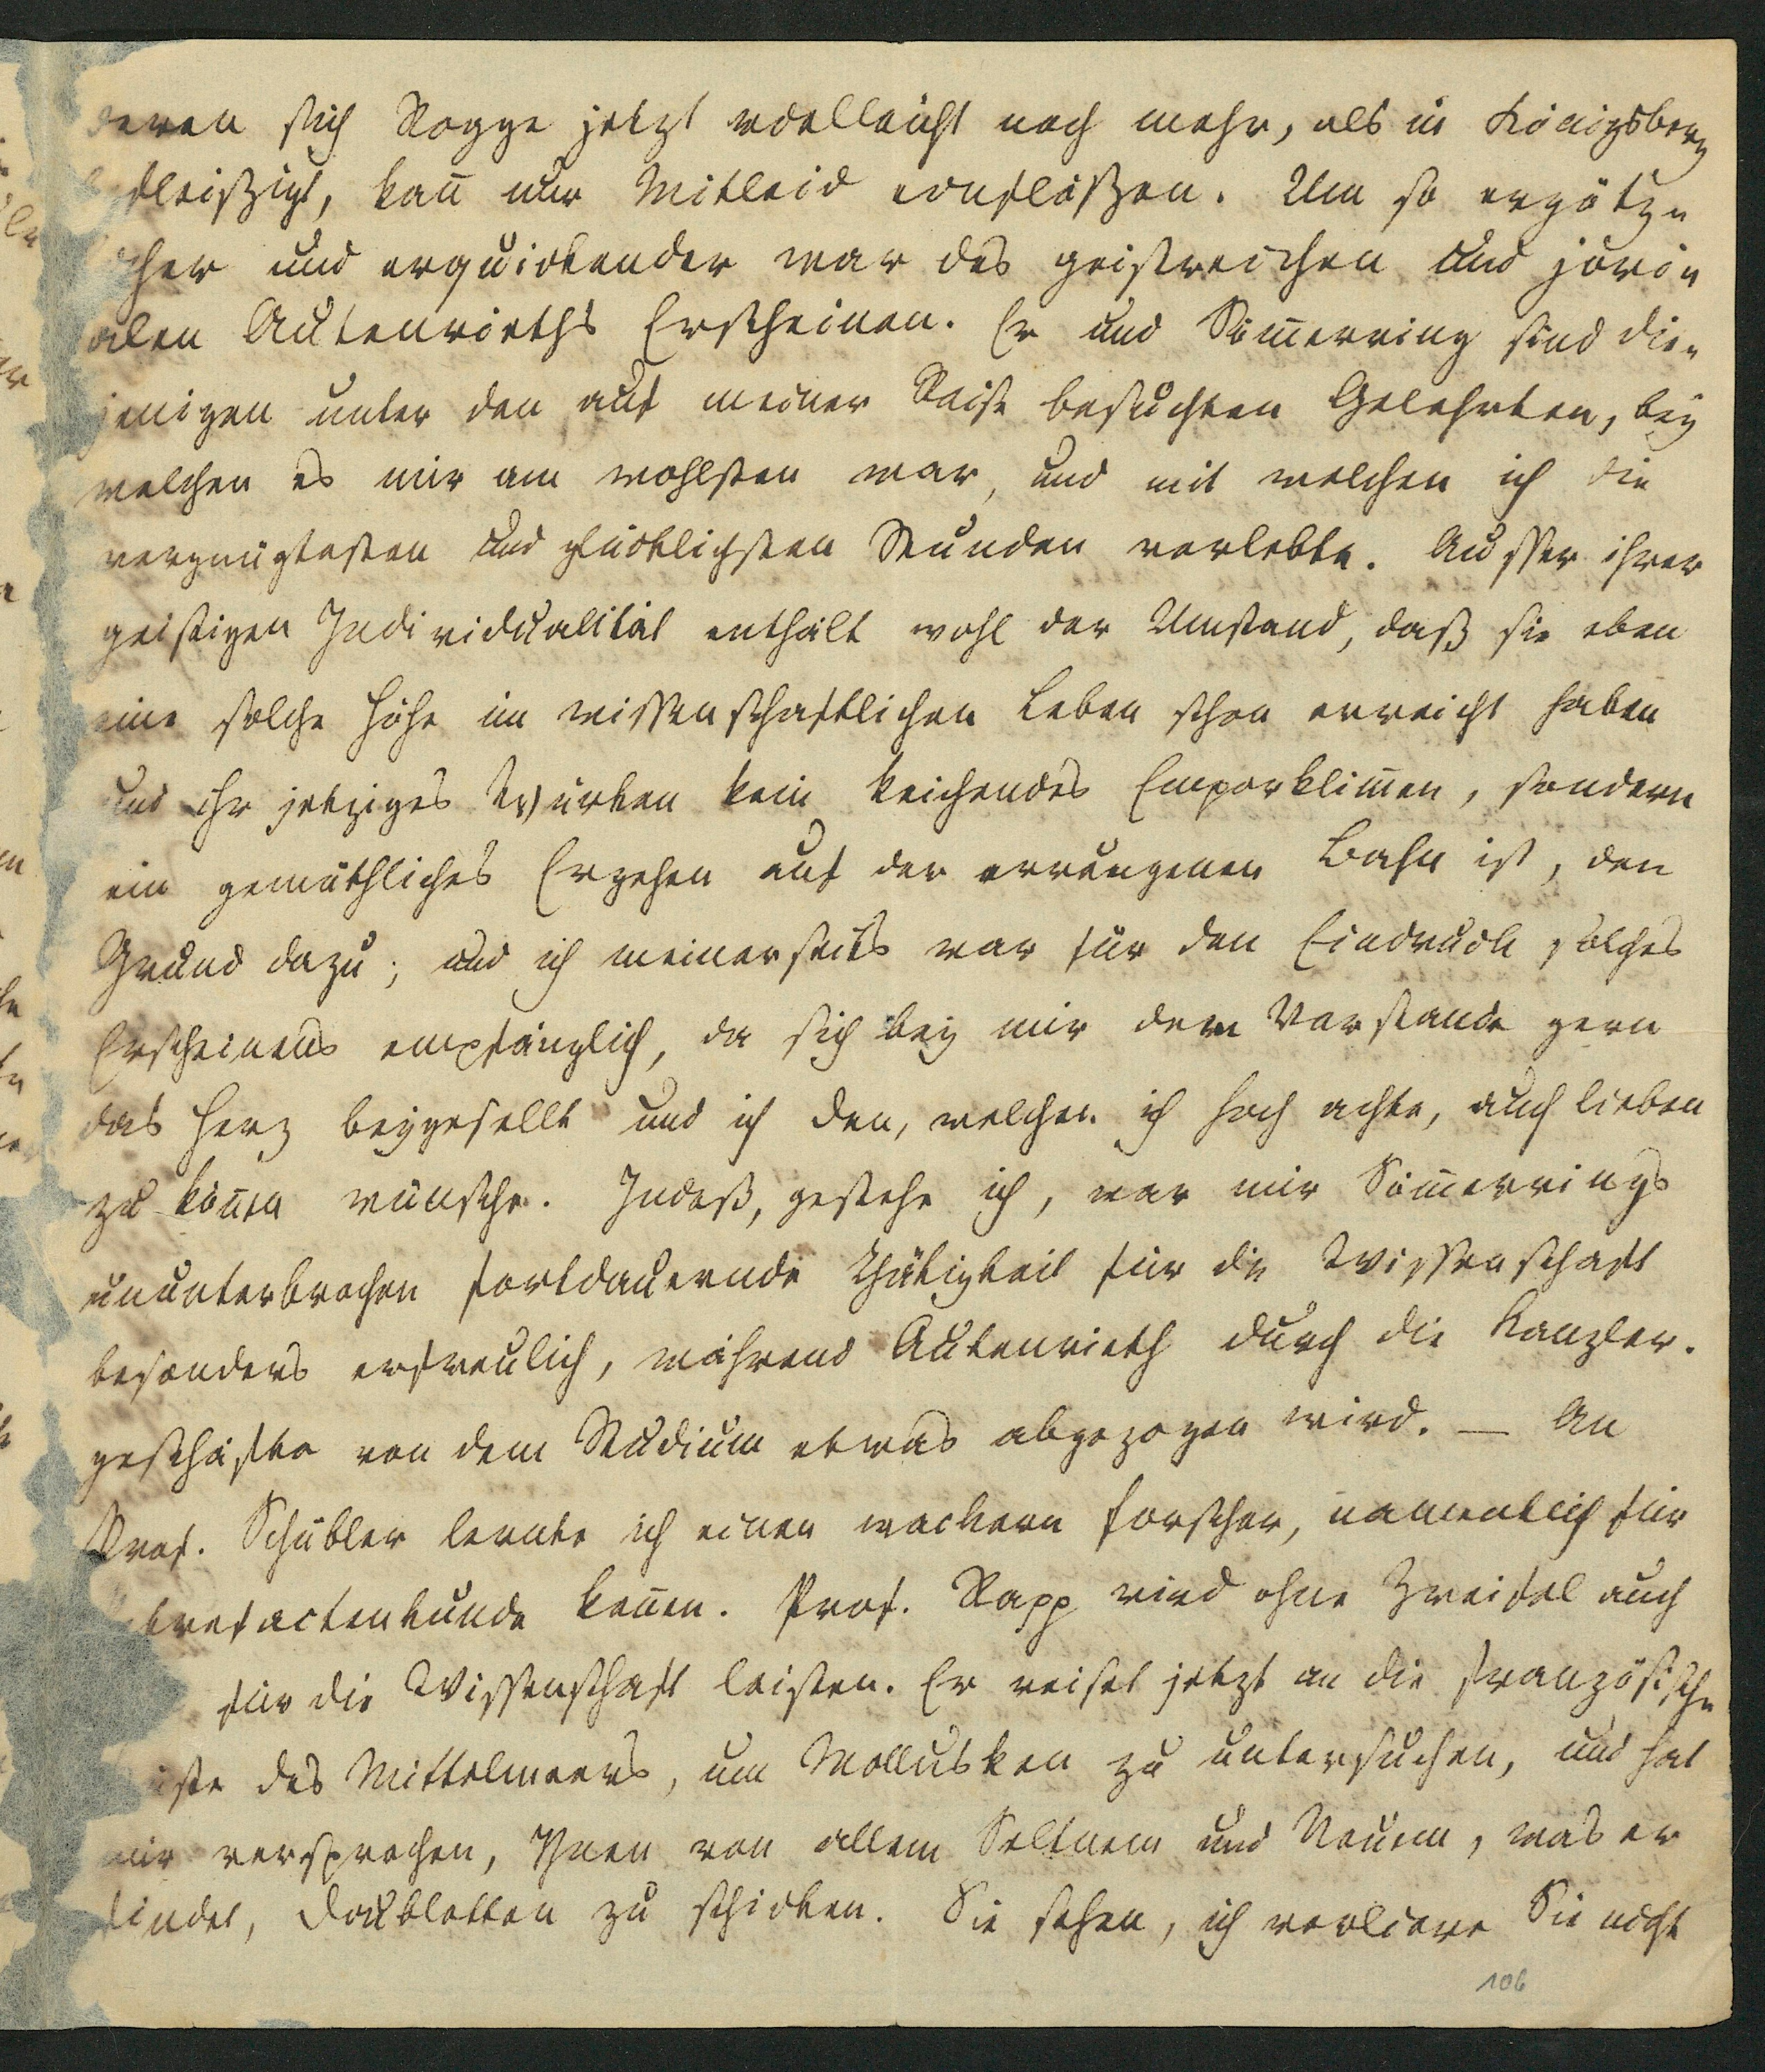 deren sich Rogge jetzt vielleicht noch mehr, als in Königsberg
fleißigt, kan̄ nur Mitleid einflößen. Um so ergötz-
cher und erquickender war des geistreichen und jovi-
alen Autenrieths Erscheinen. Er und Söm̄erring sind die-
jenigen unter den auf meiner Reise besuchten Gelehrten, bey
welchen es mir am wohlsten war, und mit welchen ich die
vergnügtesten und glücklichsten Stunden verlebte. Ausser ihrer
geistigen Individualität enthält wohl der Umstand, daß sie eben
eine solche Höhe im wissenschaftlichen Leben schon erreicht haben
und ihr jetziges Würken kein keichendes Emporklim̄en, sondern
ein gemüthliches Ergehen auf der errungenen Bahn ist, den
Grund dazu; und ich meinerseits war für den Eindruck solches
Erscheinens empfänglich, da sich bey mir dem Verstande gern
das Herz beygesellt und ich den, welchen ich hoch achte, auch lieben
zu kön̄en wünsche. Indeß, gestehe ich, war mir Söm̄errings
ununterbrochen fortdauernde Thätigkeit für die Wissenschaft
besonders erfreulich, während Autenrieth durch die Kanzler-
geschäfte von dem Studium etwas abgezogen wird. — An
Prof. Schübler lernte ich einen wackern Forscher, namentlich für
trefactenkunde ken̄en. Prof. Rapp wird ohne Zweifel auch
für die Wissenschaft leisten. Er reiset jetzt an die französische
üste des Mittelmeers, um Mollusken zu untersuchen, und hat
mir versprochen, Ihnen von allem Seltnem und Neuem, was er
findet, Doubletten zu schicken. Sie sehen, ich verliere Sie nicht
106